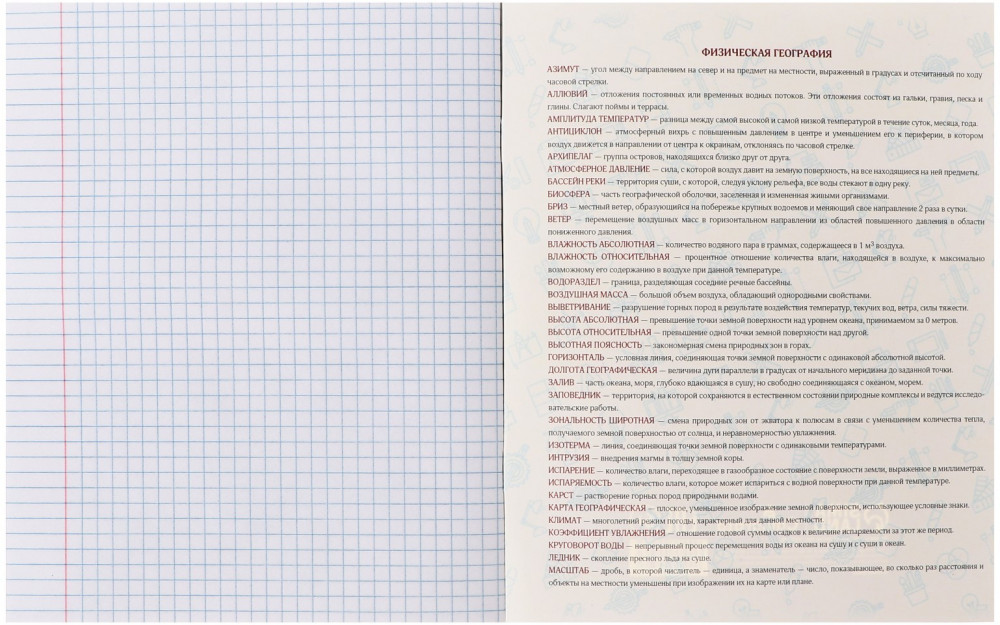 ФИЗИЧЕСКАЯ ГЕОГРАФИЯ
АЗИМУТ — угол между направлением на север и на предмет на местности, выраженный в градусах и отсчитанный по ходу
часовой стрелки.
АЛЛЮВИЙ — отложения постоянных или временных водных потоков. Эти отложения состоят из гальки, гравия, песка и
глины. Слагают поймы и террасы.
АМПЛИТУДА ТЕМПЕРАТУР — разница между самой высокой и самой низкой температурой в течение суток, месяца, года.
АНТИЦИКЛОН — атмосферный вихрь с повышенным давлением в центре и уменьшением его к периферии, в котором
воздух движется в направлении от центра к окраинам, отклоняясь по часовой стрелке.
АРХИПЕЛАГ — группа островов, находящихся близко друг от друга.
АТМОСФЕРНОЕ ДАВЛЕНИЕ — сила, с которой воздух давит на земную поверхность, на все находящиеся на ней предметы.
БАССЕЙН РЕКИ — территория суши, с которой, следуя уклону рельефа, все воды стекают в одну реку.
БИОСФЕРА — часть географической оболочки, заселенная и измененная живыми организмами.
БРИЗ — местный ветер, образующийся на побережье крупных водоемов и меняющий свое направление 2 раза в сутки.
ВЕТЕР — перемещение воздушных масс в горизонтальном направлении из областей повышенного давления в области
пониженного давления.
ВЛАЖНОСТЬ АБСОЛЮТНАЯ — количество водяного пара в граммах, содержащееся в 1 м³ воздуха.
ВЛАЖНОСТЬ ОТНОСИТЕЛЬНАЯ — процентное отношение количества влаги, находящейся в воздухе, к максимально
возможному его содержанию в воздухе при данной температуре.
ВОДОРАЗДЕЛ — граница, разделяющая соседние речные бассейны.
ВОЗДУШНАЯ МАССА — большой объем воздуха, обладающий однородными свойствами.
ВЫВЕТРИВАНИЕ — разрушение горных пород в результате воздействия температур, текучих вод, ветра, силы тяжести.
ВЫСОТА АБСОЛЮТНАЯ — превышение точки земной поверхности над уровнем океана, принимаемом за 0 метров.
ВЫСОТА ОТНОСИТЕЛЬНАЯ — превышение одной точки земной поверхности над другой.
ВЫСОТНАЯ ПОЯСНОСТЬ — закономерная смена природных зон в горах.
ГОРИЗОНТАЛЬ — условная линия, соединяющая точки земной поверхности с одинаковой абсолютной высотой.
ДОЛГОТА ГЕОГРАФИЧЕСКАЯ — величина дуги параллели в градусах от начального меридиана до заданной точки.
ЗАЛИВ — часть океана, моря, глубоко вдающаяся в сушу, но свободно соединяющаяся с океаном, морем.
ЗАПОВЕДНИК — территория, на которой сохраняются в естественном состоянии природные комплексы и ведутся исследо-
вательские работы.
ЗОНАЛЬНОСТЬ ШИРОТНАЯ — смена природных зон от экватора к полюсам в связи с уменьшением количества тепла,
получаемого земной поверхностью от солнца, и неравномерностью увлажнения.
ИЗОТЕРМА — линия, соединяющая точки земной поверхности с одинаковыми температурами.
ИНТРУЗИЯ — внедрения магмы в толщу земной коры.
ИСПАРЕНИЕ — количество влаги, переходящее в газообразное состояние с поверхности земли, выраженное в миллиметрах.
ИСПАРЯЕМОСТЬ — количество влаги, которое может испариться с водной поверхности при данной температуре.
КАРСТ — растворение горных пород природными водами.
КАРТА ГЕОГРАФИЧЕСКАЯ — плоское, уменьшенное изображение земной поверхности, использующее условные знаки.
КЛИМАТ — многолетний режим погоды, характерный для данной местности.
КОЭФФИЦИЕНТ УВЛАЖНЕНИЯ — отношение годовой суммы осадков к величине испаряемости за этот же период.
КРУГОВОРОТ ВОДЫ — непрерывный процесс перемещения воды из океана на сушу и с суши в океан.
ЛЕДНИК — скопление пресного льда на суше.
МАСШТАБ — дробь, в которой числитель — единица, а знаменатель — число, показывающее, во сколько раз расстояния и
объекты на местности уменьшены при изображении их на карте или плане.